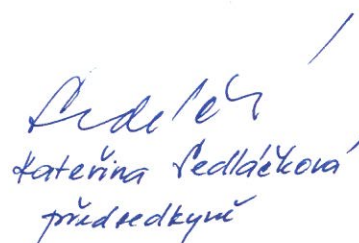 Kateřina Sedláčková
předsedkyně